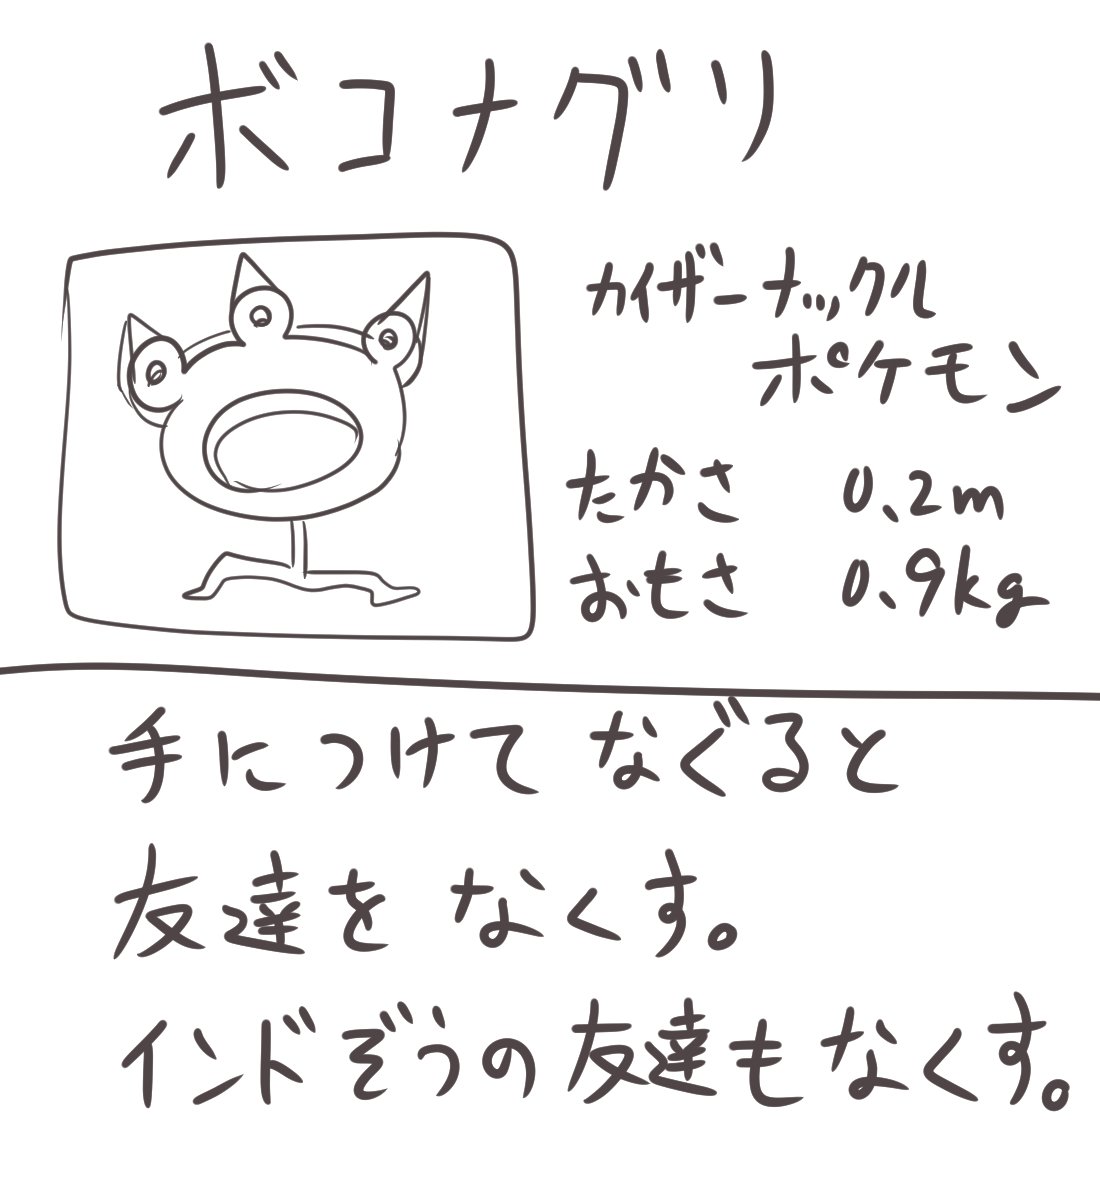 ボコナグリ
カイザーナックル
ポケモン
たかさ 0.2m
おもさ 0.9kg
手につけて なぐると
友達を なくす。
インドぞうの友達もなくす。